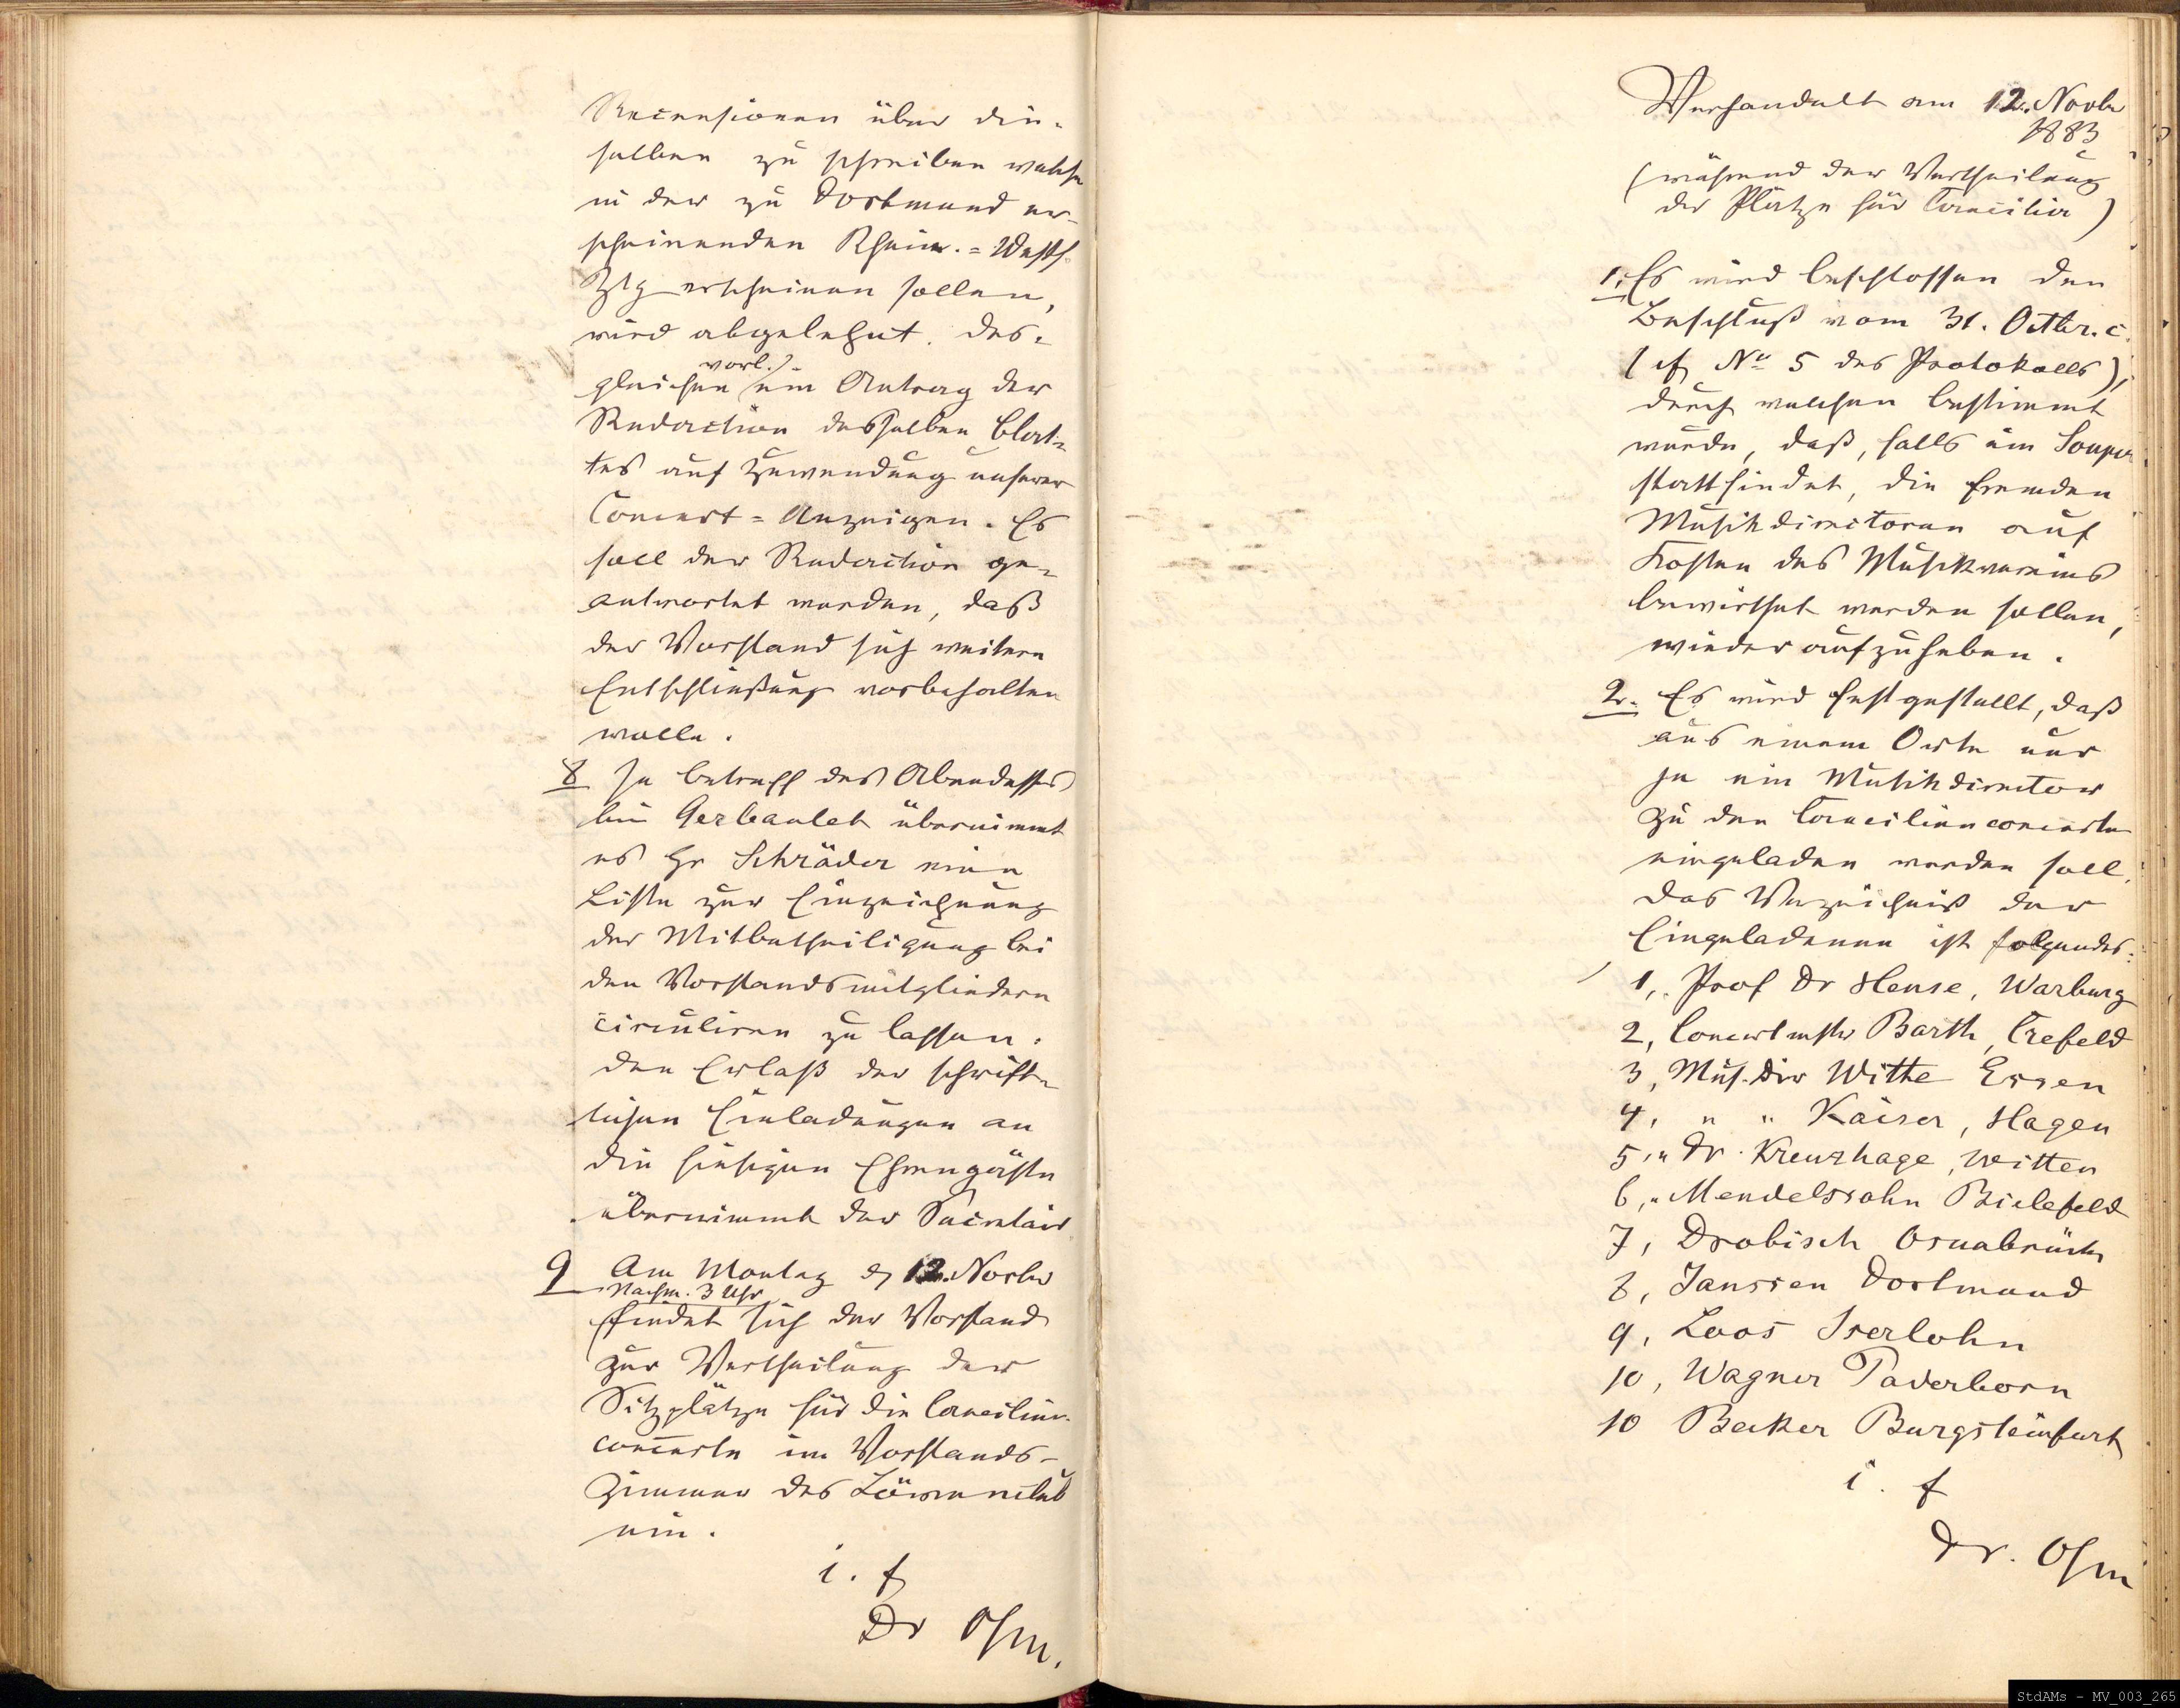 Recensionen über die-
selben zu schreiben welche
in der zu Dortmund er-
scheinenden Rhein.-Westf.
Ztg erscheinen sollen,
wird abgelehnt. Des-
vorl.
gleichen ein Antrag der
Redaction desselben Blat-
tes auf Zuwendung unserer
Concert-Anzeigen. Es
soll der Redaction ge-
antwortet werden, daß
der Vorstand sich weitere
Entschließung vorbehalten
wolle.
8 In betreff des Abendessens
bei Gerbaulet übernimmt
es Hr Schräder eine
Liste zur Einzeichnung
der Mitbetheiligung bei
den Vorstandsmitgliedern
circuliren zu lassen.
Den Erlaß der schrift-
lichen Einladungen an
die hiesigen Ehrengäste
übernimmt der Secretair
9 Am Montag d 12. Novbr
Nachm. 3 Uhr
findet sich der Vorstand
zur Vertheilung der
Sitzplätze für die Caecilien-
concerte im Vorstands-
Zimmer des Löwenclub
ein.
i. f
Dr Ohm.
Verhandelt am 12. Novbr
1883
(während der Vertheilung
der Plätze für Caecilia)
1. Es wird beschlossen den
Beschluß vom 31. Octbr. c.
(cf No 5 des Protokolls),
durch welchen bestimmt
wurde, daß, falls ein Souper
stattfindet, die fremden
Musikdirectoren auf
Kosten des Musikvereins
bewirthet werden sollen,
wieder aufzuheben.
2. Es wird festgestellt, daß
aus einem Orte nur
je ein Musikdirector
zu den Caecilienconcerte
eingeladen werden soll.
Das Verzeichniß der
Eingeladenen ist folgendes:
1, Prof Dr Hense, Warburg
2, Concertmstr Barth, Crefeld
3, Mus. Dir Witte Essen
4, " " Kaiser, Hagen
5, " Dr. Kreuzhage, Witten
6, " Mendelssohn Bielefeld
7, Drobisch Osnabrück
8, Janssen Dortmund
9, Loos Iserlohn
10, Wagner Paderborn
10 Becker Burgsteinfurt
i. f
Dr. Ohm
StdAMs - MV_003_265